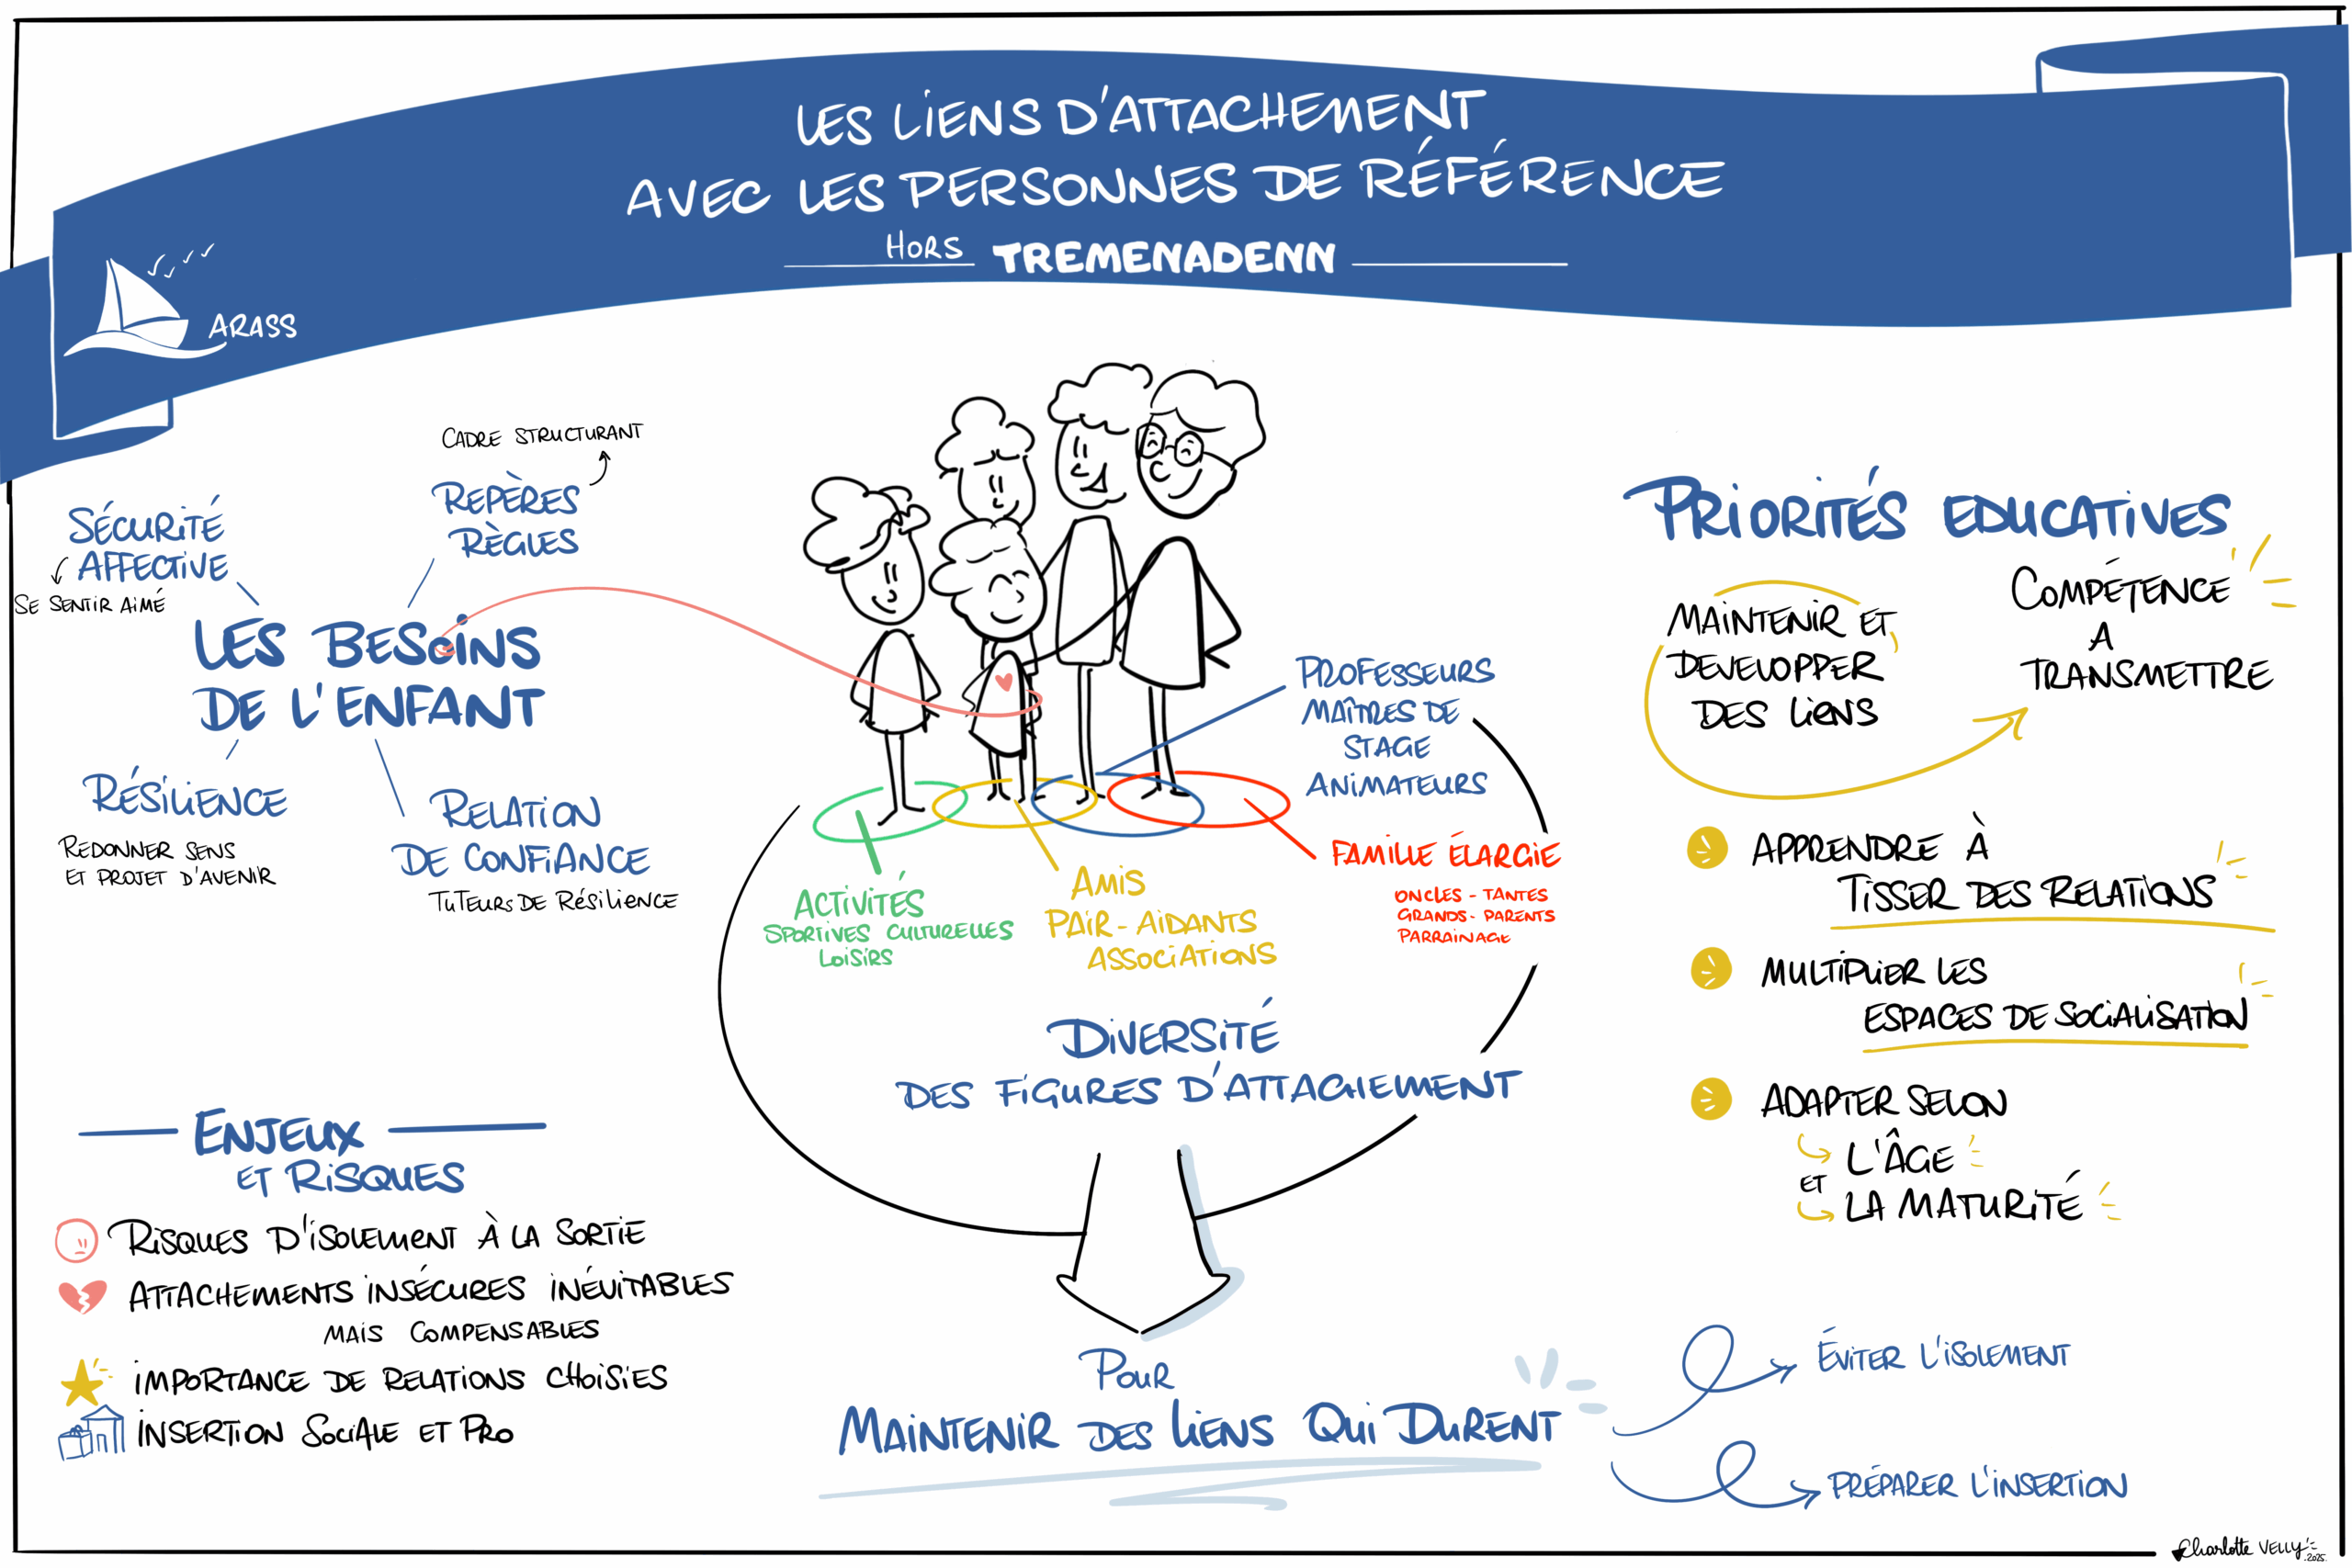 LES LIENS D'ATTACHEMENT
AVEC LES PERSONNES DE RÉFÉRENCE
HORS TREMENADENN
ARASS
CADRE STRUCTURANT
REPÈRES
RÈGLES
SÉCURITÉ
AFFECTIVE
SE SENTIR AIMÉ
LES BESOINS
DE L'ENFANT
RÉSILIENCE
REDONNER SENS
ET PROJET D'AVENIR
RELATION
DE CONFIANCE
TUTEURS DE RÉSILIENCE
ENJEUX
ET RISQUES
RISQUES D'ISOLEMENT À LA SORTIE
ATTACHEMENTS INSÉCURES INÉVITABLES
MAIS COMPENSABLES
IMPORTANCE DE RELATIONS CHOISIES
INSERTION SOCIALE ET PRO
PROFESSEURS
MAÎTRES DE
STAGE
ANIMATEURS
FAMILLE ÉLARGIE
ONCLES - TANTES
GRANDS - PARENTS
PARRAINAGE
ACTIVITÉS
SPORTIVES CULTURELLES
LOISIRS
AMIS
PAIR - AIDANTS
ASSOCIATIONS
DIVERSITÉ
DES FIGURES D'ATTACHEMENT
POUR
MAINTENIR DES LIENS QUI DURENT
ÉVITER L'ISOLEMENT
PRÉPARER L'INSERTION
PRIORITÉS EDUCATIVES
MAINTENIR ET
DEVELOPPER
DES LIENS
COMPÉTENCE
A
TRANSMETTRE
APPRENDRE À
TISSER DES RELATIONS
MULTIPLIER LES
ESPACES DE SOCIALISATION
ADAPTER SELON
L'ÂGE
ET
LA MATURITÉ
Charlotte VELLY
.2025.